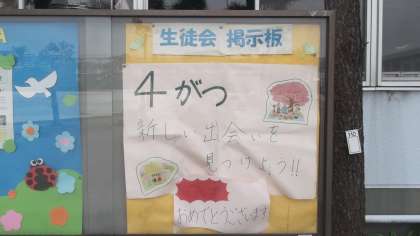 生徒会 掲示板
4がつ
新しい出会いを
見つけよう!!
おめでとうございます